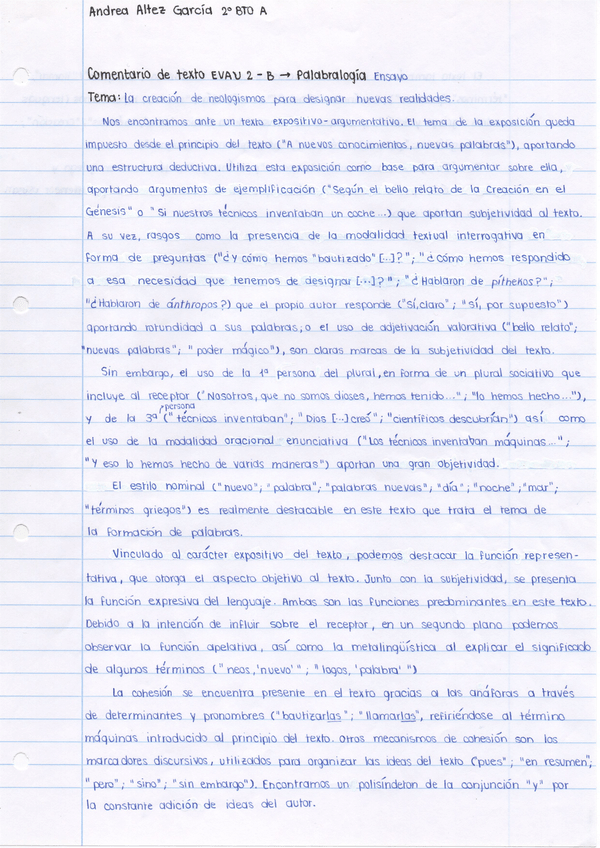 Andrea Altez García 2º BTO A
Comentario de texto EVAU 2 - B → Palabralogía Ensayo
Tema: La creación de neologismos para designar nuevas realidades.
Nos encontramos ante un texto expositivo-argumentativo. El tema de la exposición queda
impuesto desde el principio del texto ("A nuevos conocimientos, nuevas palabras"), aportando
una estructura deductiva. Utiliza esta exposición como base para argumentar sobre ella,
aportando argumentos de ejemplificación ("Según el bello relato de la Creación en el
Génesis" o "Si nuestros técnicos inventaban un coche...) que aportan subjetividad al texto.
A su vez, rasgos como la presencia de la modalidad textual interrogativa en
forma de preguntas ("¿y cómo hemos "bautizado" [...]?"; "¿cómo hemos respondido
a esa necesidad que tenemos de designar [...]?"; "¿Hablaron de píthekos?";
"¿Hablaron de ánthropos?) que el propio autor responde ("Sí, claro"; "sí, por supuesto")
aportando rotundidad a sus palabras, o el uso de adjetivación valorativa ("bello relato";
"nuevas palabras"; "poder mágico"), son claras marcas de la subjetividad del texto.
Sin embargo, el uso de la 1ª persona del plural, en forma de un plural sociativo que
incluye al receptor ("Nosotros, que no somos dioses, hemos tenido..."; "lo hemos hecho..."),
y de la 3ª persona ("técnicos inventaban"; "Dios [...] creó"; "científicos descubrían") así como
el uso de la modalidad oracional enunciativa ("Los técnicos inventaban máquinas...";
"Y eso lo hemos hecho de varias maneras") aportan una gran objetividad.
El estilo nominal ("nuevo"; "palabra"; "palabras nuevas"; "día"; "noche"; "mar";
"términos griegos") es realmente destacable en este texto que trata el tema de
la formación de palabras.
Vinculado al carácter expositivo del texto, podemos destacar la función represen-
tativa, que otorga el aspecto objetivo al texto. Junto con la subjetividad, se presenta
la función expresiva del lenguaje. Ambas son las funciones predominantes en este texto.
Debido a la intención de influir sobre el receptor, en un segundo plano podemos
observar la función apelativa, así como la metalingüística al explicar el significado
de algunos términos ("neos, 'nuevo'"; "logos, 'palabra'")
La cohesión se encuentra presente en el texto gracias a las anáforas a través
de determinantes y pronombres ("bautizarlas"; "llamarlas", refiriéndose al término
máquinas introducido al principio del texto. Otros mecanismos de cohesión son los
marcadores discursivos, utilizados para organizar las ideas del texto ("pues"; "en resumen";
"pero"; "sino"; "sin embargo"). Encontramos un polisíndeton de la conjunción "y" por
la constante adición de ideas del autor.